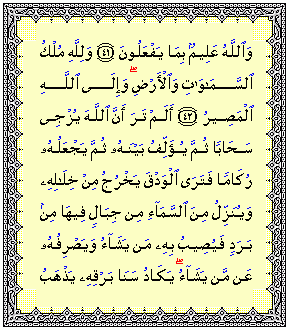 وَٱللَّهُ عَلِيمٌۢ بِمَا يَفْعَلُونَ ٤١ وَلِلَّهِ مُلْكُ
ٱلسَّمَـٰوَٰتِ وَٱلْأَرْضِ ۖ وَإِلَى ٱللَّهِ
ٱلْمَصِيرُ ٤٢ أَلَمْ تَرَ أَنَّ ٱللَّهَ يُزْجِى
سَحَابًا ثُمَّ يُؤَلِّفُ بَيْنَهُۥ ثُمَّ يَجْعَلُهُۥ
رُكَامًا فَتَرَى ٱلْوَدْقَ يَخْرُجُ مِنْ خِلَـٰلِهِۦ
وَيُنَزِّلُ مِنَ ٱلسَّمَآءِ مِن جِبَالٍ فِيهَا مِنۢ
بَرَدٍ فَيُصِيبُ بِهِۦ مَن يَشَآءُ وَيَصْرِفُهُۥ
عَن مَّن يَشَآءُ ۖ يَكَادُ سَنَا بَرْقِهِۦ يَذْهَبُ